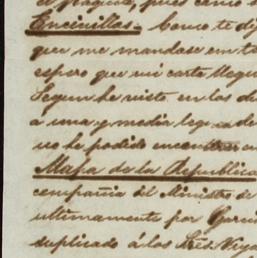 Encinillas. Como te di
que me mandase con to
espero que mi carta llegu
Segun he visto en los d
a una y media legua de
no he podido encontrar
Mapa de la Republica
compañia del Ministro de
ultimamente por Garci
suplicado á los Sres.